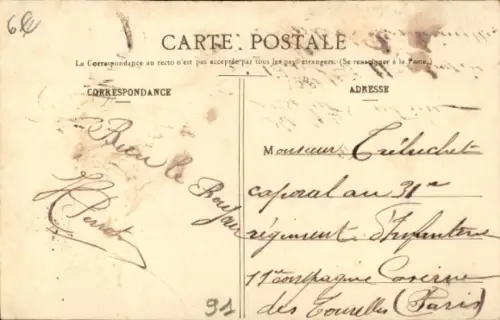 6€
CARTE POSTALE
La Correspondance au recto n'est pas acceptée par tous les pays étrangers. (Se renseigner à la Poste.)
CORRESPONDANCE
Bien le Bonjour
ADRESSE
Monsieur Tréluchet
caporal au 31me
régiment d'Infanterie
11e compagnie Caserne
des Tourelles (Paris)
91